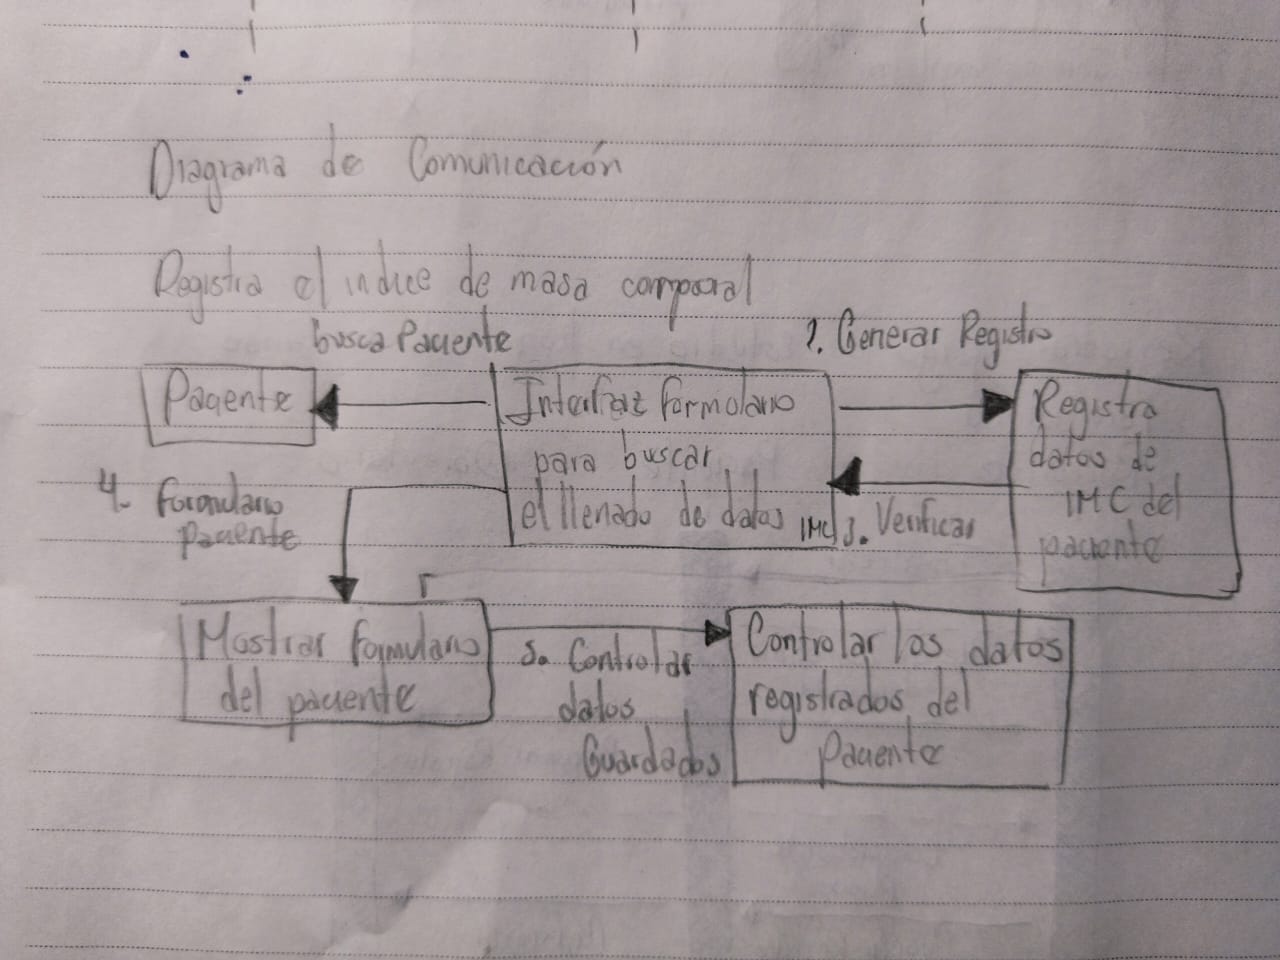 Diagrama de Comunicación
Registra el indice de masa corporal
busca Paciente
2. Generar Registro
Paciente
Interfaz formulario
para buscar
el llenado de datos IMC
Registra
datos de
IMC del
paciente
3. Verificar
4. formulario
paciente
Mostrar formulario
del paciente
5. Controlar
datos
Guardados
Controlar los datos
registrados del
Paciente